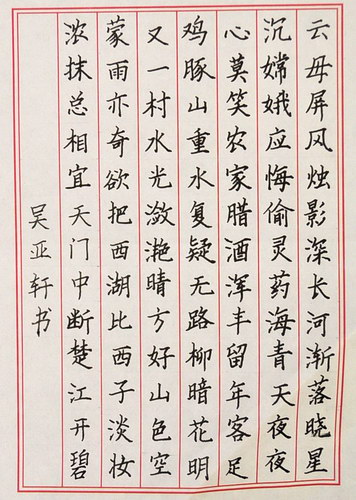 云母屏风烛影深长河渐落晓星
沉嫦娥应悔偷灵药海青天夜夜
心莫笑农家腊酒浑丰留年客足
鸡豚山重水复疑无路柳暗花明
又一村水光潋滟晴方好山色空
蒙雨亦奇欲把西湖比西子淡妆
浓抹总相宜天门中断楚江开碧
吴亚轩书